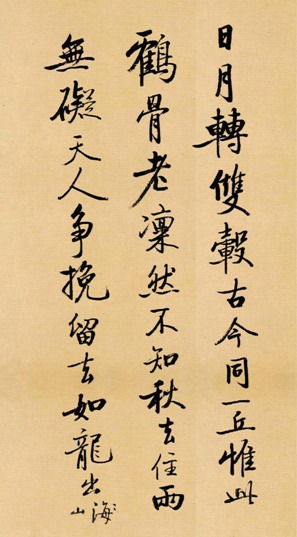 日月轉雙轂古今同一丘惟此
鶴骨老凜然不知秋去住兩
無礙天人争挽留去如龍出
海
山